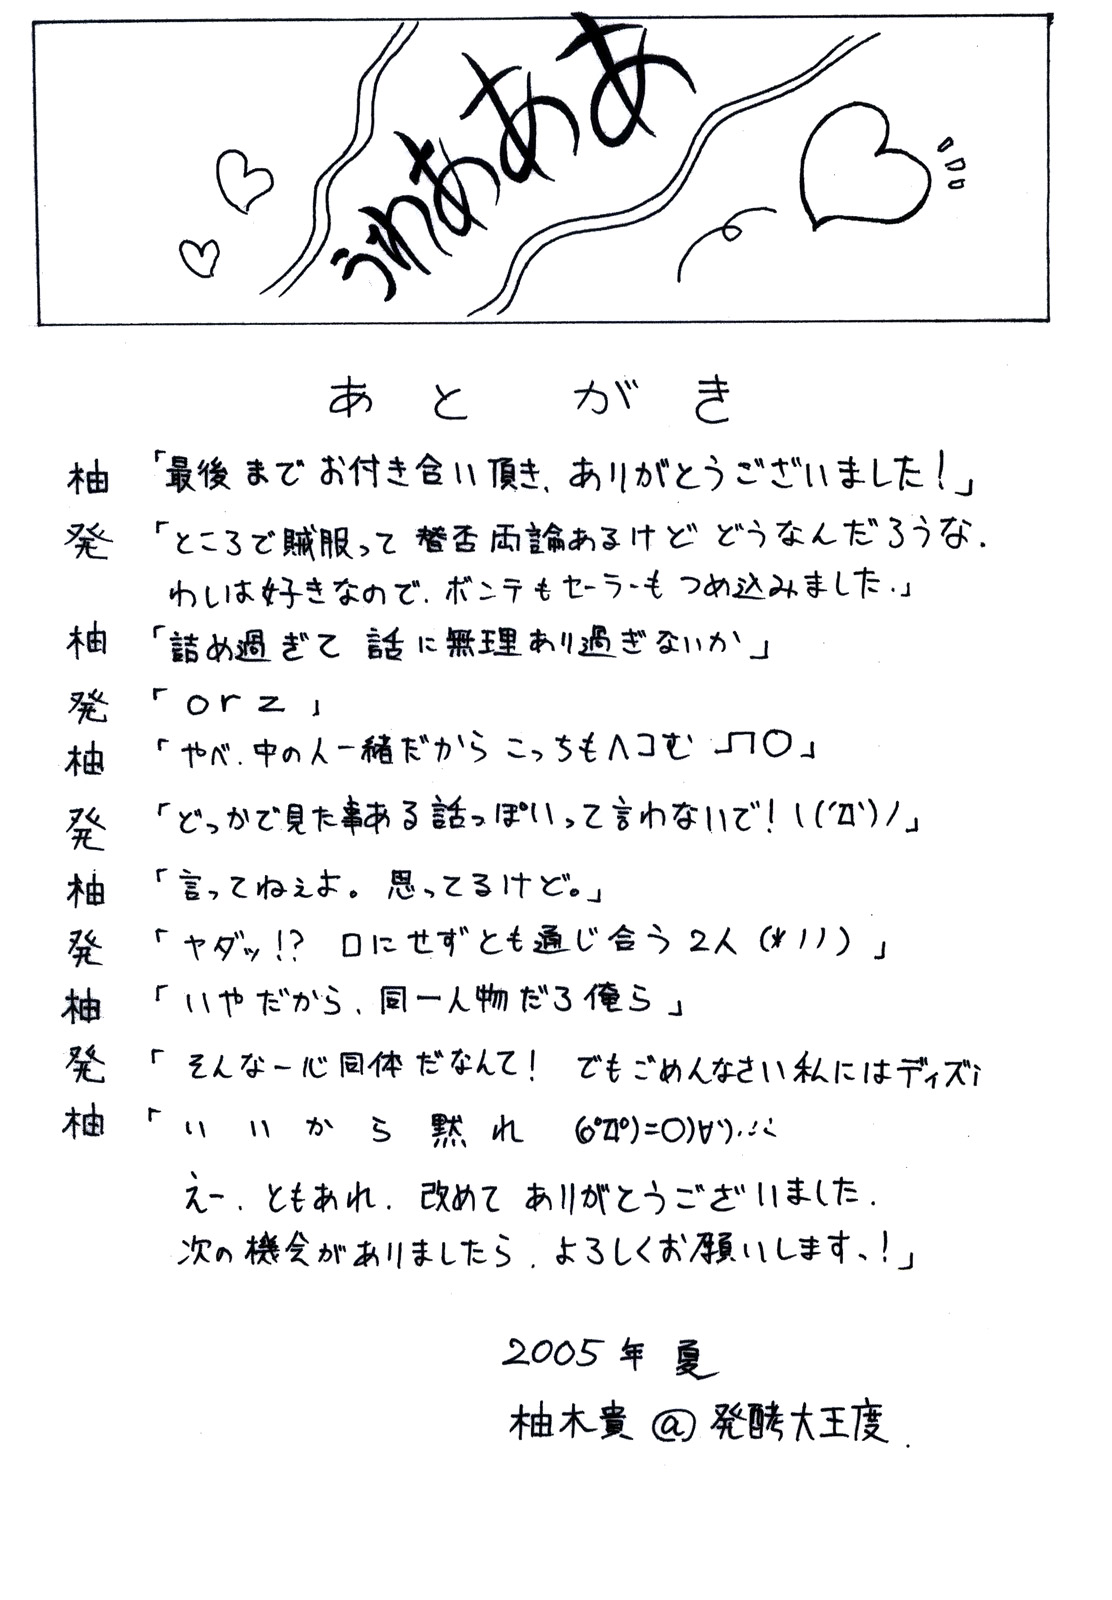 うわあああ
あとがき
柚「最後までお付き合い頂き、ありがとうございました!」
発「ところで賊服って賛否両論あるけどどうなんだろうな.
わしは好きなので.ボンテもセーラーもつめ込みました.」
柚「詰め過ぎて話に無理あり過ぎないか」
発「orz」
柚「やべ.中の人一緒だからこっちもヘコむ _| ̄|○」
発「どっかで見た事ある話っぽいって言わないで!\(´Д`)ノ」
柚「言ってねぇよ。思ってるけど。」
発「ヤダッ!?口にせずとも通じ合う2人(*ノノ)」
柚「いやだから、同一人物だろ俺ら」
発「そんな一心同体だなんて! でもごめんなさい私にはディズi
柚「いいから黙れ (o゚Д゚)=○)∀`).∵
えー.ともあれ.改めてありがとうございました.
次の機会がありましたら.よろしくお願いします、!」
2005年 夏
柚木貴@発酵大王度.